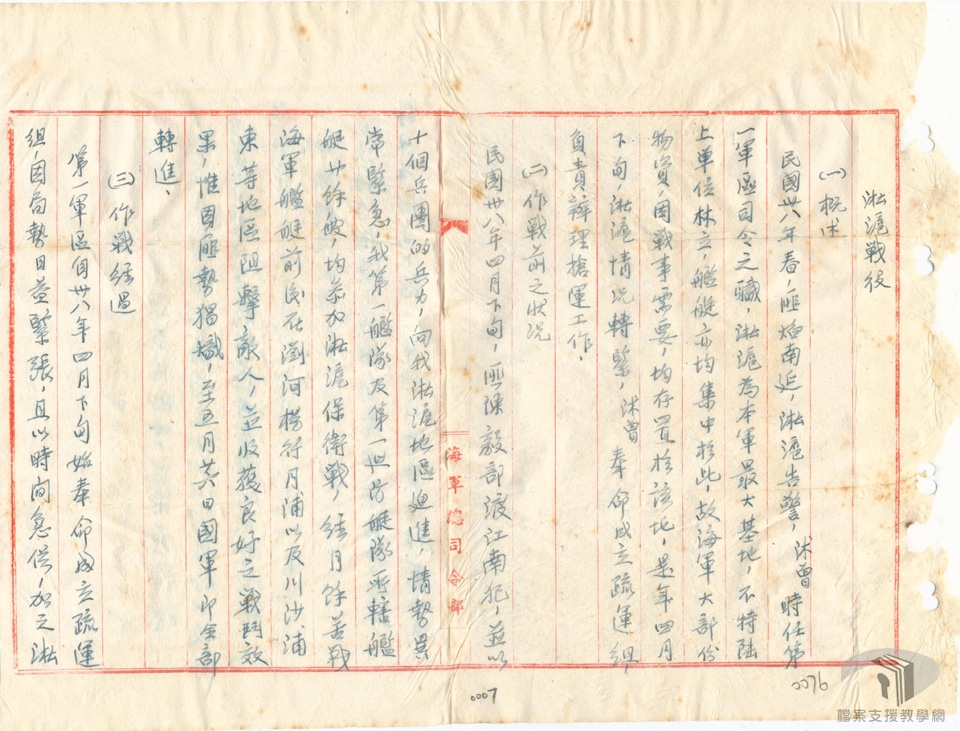 淞滬戰役
(一)概述
民國卅八年春，匪焰南延，淞滬告警，沐曾時任第
一軍區司令之職，淞滬為本軍最大基地，不特陸
上單位林立，艦艇亦均集中於此，故海軍大部份
物資，因戰事需要，均存置於該地，是年四月
下旬，淞滬情況轉緊，沐曾奉命成立疏運組，
負責辦理搶運工作、
(二)作戰前之狀況
民國卅八年四月下旬，匪陳毅部渡江南犯，並以
海軍總司令部
十個兵團的兵力，向我淞滬地區迫進，情勢異
常緊急，我第一艦隊及第一巡防艇隊所轄艦
艇廿餘艘，均參加淞滬保衛戰，經月餘苦戰
海軍艦艇前後在瀏河楊行月浦以及川沙浦
東等地區阻擊敵人，並收獲良好之戰鬥效
果，惟因匪勢猖熾，至五月廿六日國軍即全部
轉進、
(三)作戰經過
第一軍區自卅八年四月下旬始奉命成立疏運
組，因局勢日益緊張，且以時間急促，加之淞
0076
0007
檔案支援教學網